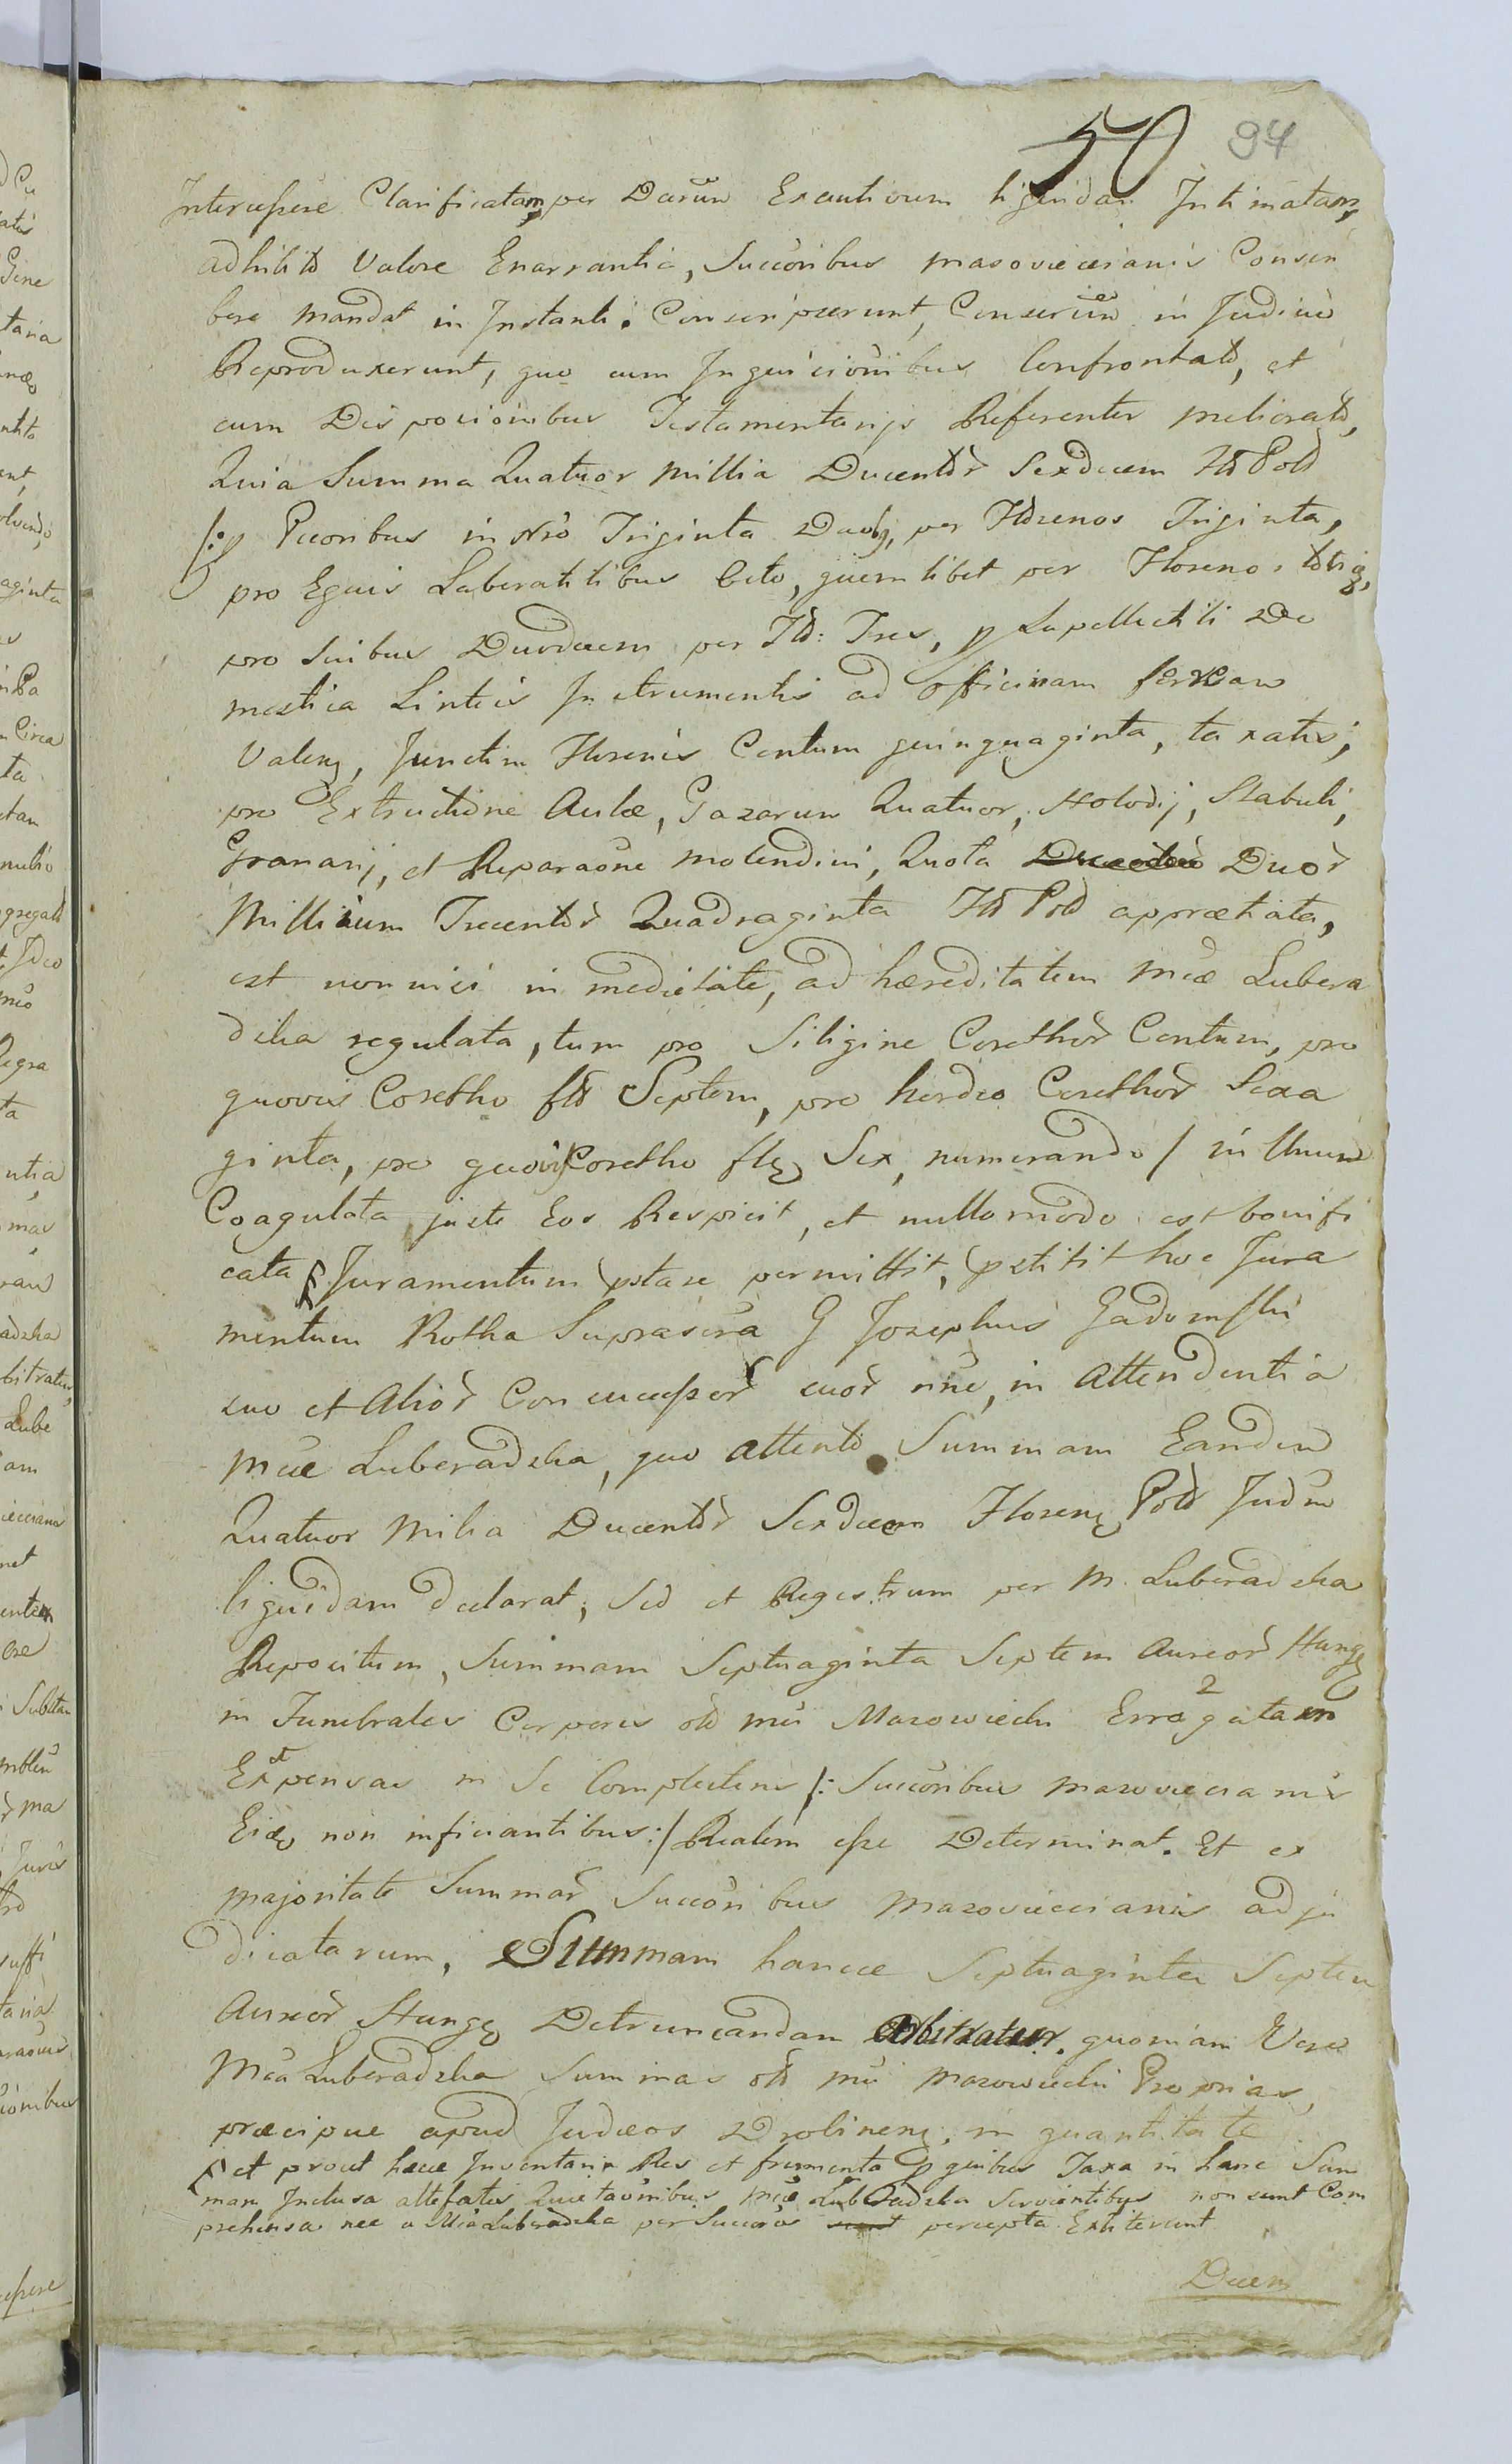 50 94
Intercessere Clarificatam, per Darun Exautioum liquidar Intimatam,
adhibito Valore Enarrantia, Succoribus masovieccianis Conscri
bere mandat in Instanti. Conscripserunt, Conscrium in Judicio
Reproduxerunt, quo cum Inquicioibus Confrontato, et
cum Disposicionibus Testamentarijs Referenter meliorato,
Quia Summa Quatuor millia Ducentor Sexdecem Fl Pold
/: p Pecoribus in Nro Triginta Duobg, per Florenos Triginta,
pro Equis Laboratilibus Octo, quemlibet per Florenos totig,
pro Suibus Duodecem per Fl: Tres, p Supellectili Do
mestica Linteis Instrumentis ad officinam ferrear
Valeng, Junctim Florenis Centum quinquaginta, taxatis,
pro Extructione Aulæ, Gazarum Quatuor, Holodij, Stabuli,
Granarij, et Reparaone molendini, Quota Duor
Millium Trecentor Quadraginta Fl Pold appretiata,
est non nisi in medietate, ad hæreditatem mcæ Lubera
dzka regulata, tum pro Siligine Corethor Centum, pro
quovis Coretho fld Septem, pro hordeo Corethor Sexa
ginta, pro quovis Coretho fleg Sex, numerando / in Unum
Coagulata juste Eos Respicit, et nullo modo est bonifi
cata Juramentum pstare permittit, pstitit hoc Jura
mentum Rotha Suprascra G Josephus Gadomski
suo et Alior Consuccessor suor nne, in Attendentia
mcæ Luberadzka, quo attento Summam Eandem
Quatuor milia Ducentor Sexdecem Floreng Pold Judm
liquidam declarat, Sed et Regestrum per M. Luberadzka
Repositum, Summam Septuaginta Septem Aureor Hung
in Funebrales Corporis old mci Mazowiecki Errogatam
Expensas in Se Complectens /: Succoribus mazovieccianis
Eidem non inficiantibus :/ Realem esse Determinat. Et ex
majoritate Summar Succoribus mazovieccianis adju
dicatarum, Summam hancce Septuaginta Septem
Aureor Hung Detruncandam Arbitratur. quoniam Vero
Mca Luberadzka Summas old mci mazowiecki Proprias,
præcipue apud Judæos Drobineng, in quantitate
et prout hæcce Inventaria Res et frumenta p quibus Taxa in hanc Sum
mam Inclusa attestatis Quietaonibus mcæ Luberadzka Servientibus non sunt Com
prehensa nec a Mca Luberadzka per Succores percepta Extiterunt
Decem